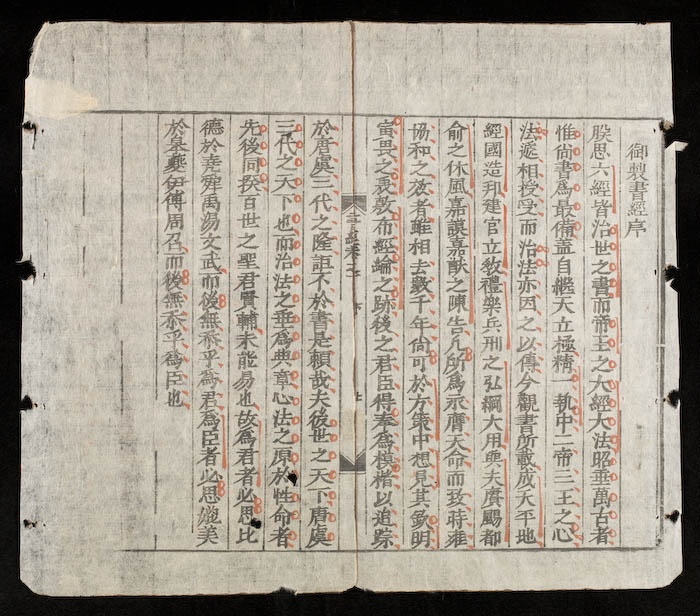 御製書經序
朕思六經皆治世之書而帝王之大經大法昭垂萬古者
惟尚書爲最備蓋自繼天立極精一執中二帝三王之心
法遞相授受而治法亦因之以傳今觀書所載成天平地
經國造邦建官立敎禮樂兵刑之弘綱大用與夫賡颺都
俞之休風嘉謨嘉猷之陳告凡所爲天命而致時雍
協和之效者雖相去數千年尙可於方策中想見其欽明
寅畏之衷敷布經綸之跡後之君臣得奉爲模楷以追踪
書經卷之
於唐虞三代之隆詎不於書是賴哉夫後世之天下唐虞
三代之天下也而治法之垂爲典章心法之原於性命者
先後同揆百世之聖君賢輔未能易也故爲君者必思比
德於堯舜禹湯文武而後無忝乎爲君爲臣者必思媲美
於皋夔伊傅周召而後無忝乎爲臣也